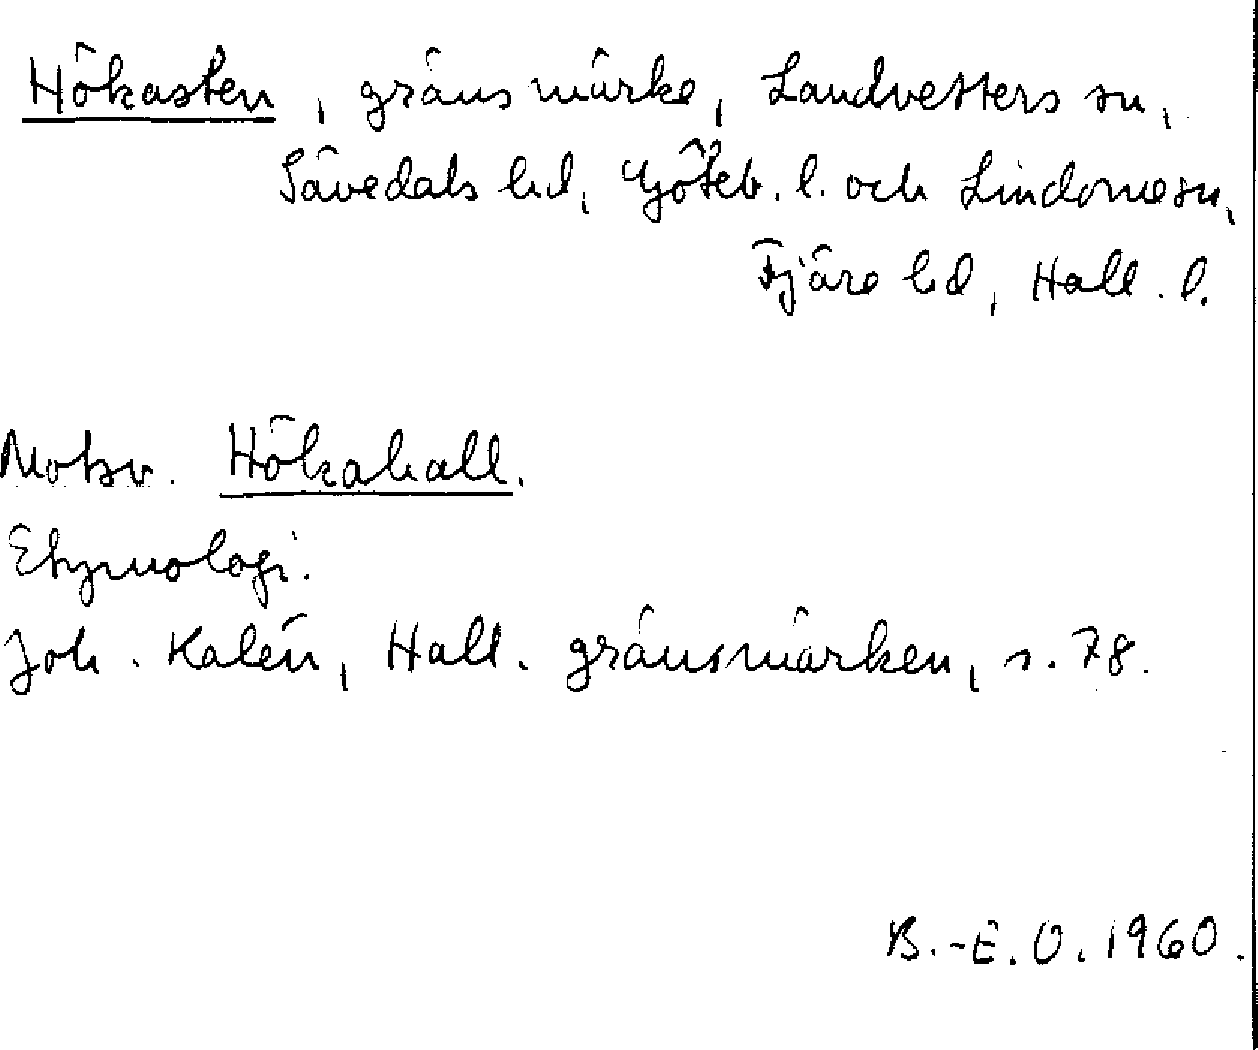 Hökasten, gränsmärke, Landvetters sn,
Sävedals hd, Göteb. l. och Lindome sn,
Fjäre hd, Hall. l.
Motsv. Hökahall.
Etymologi.
Joh. Kalén, Hall. gränsmärken, s. 78.
B.-E. O. 1960.